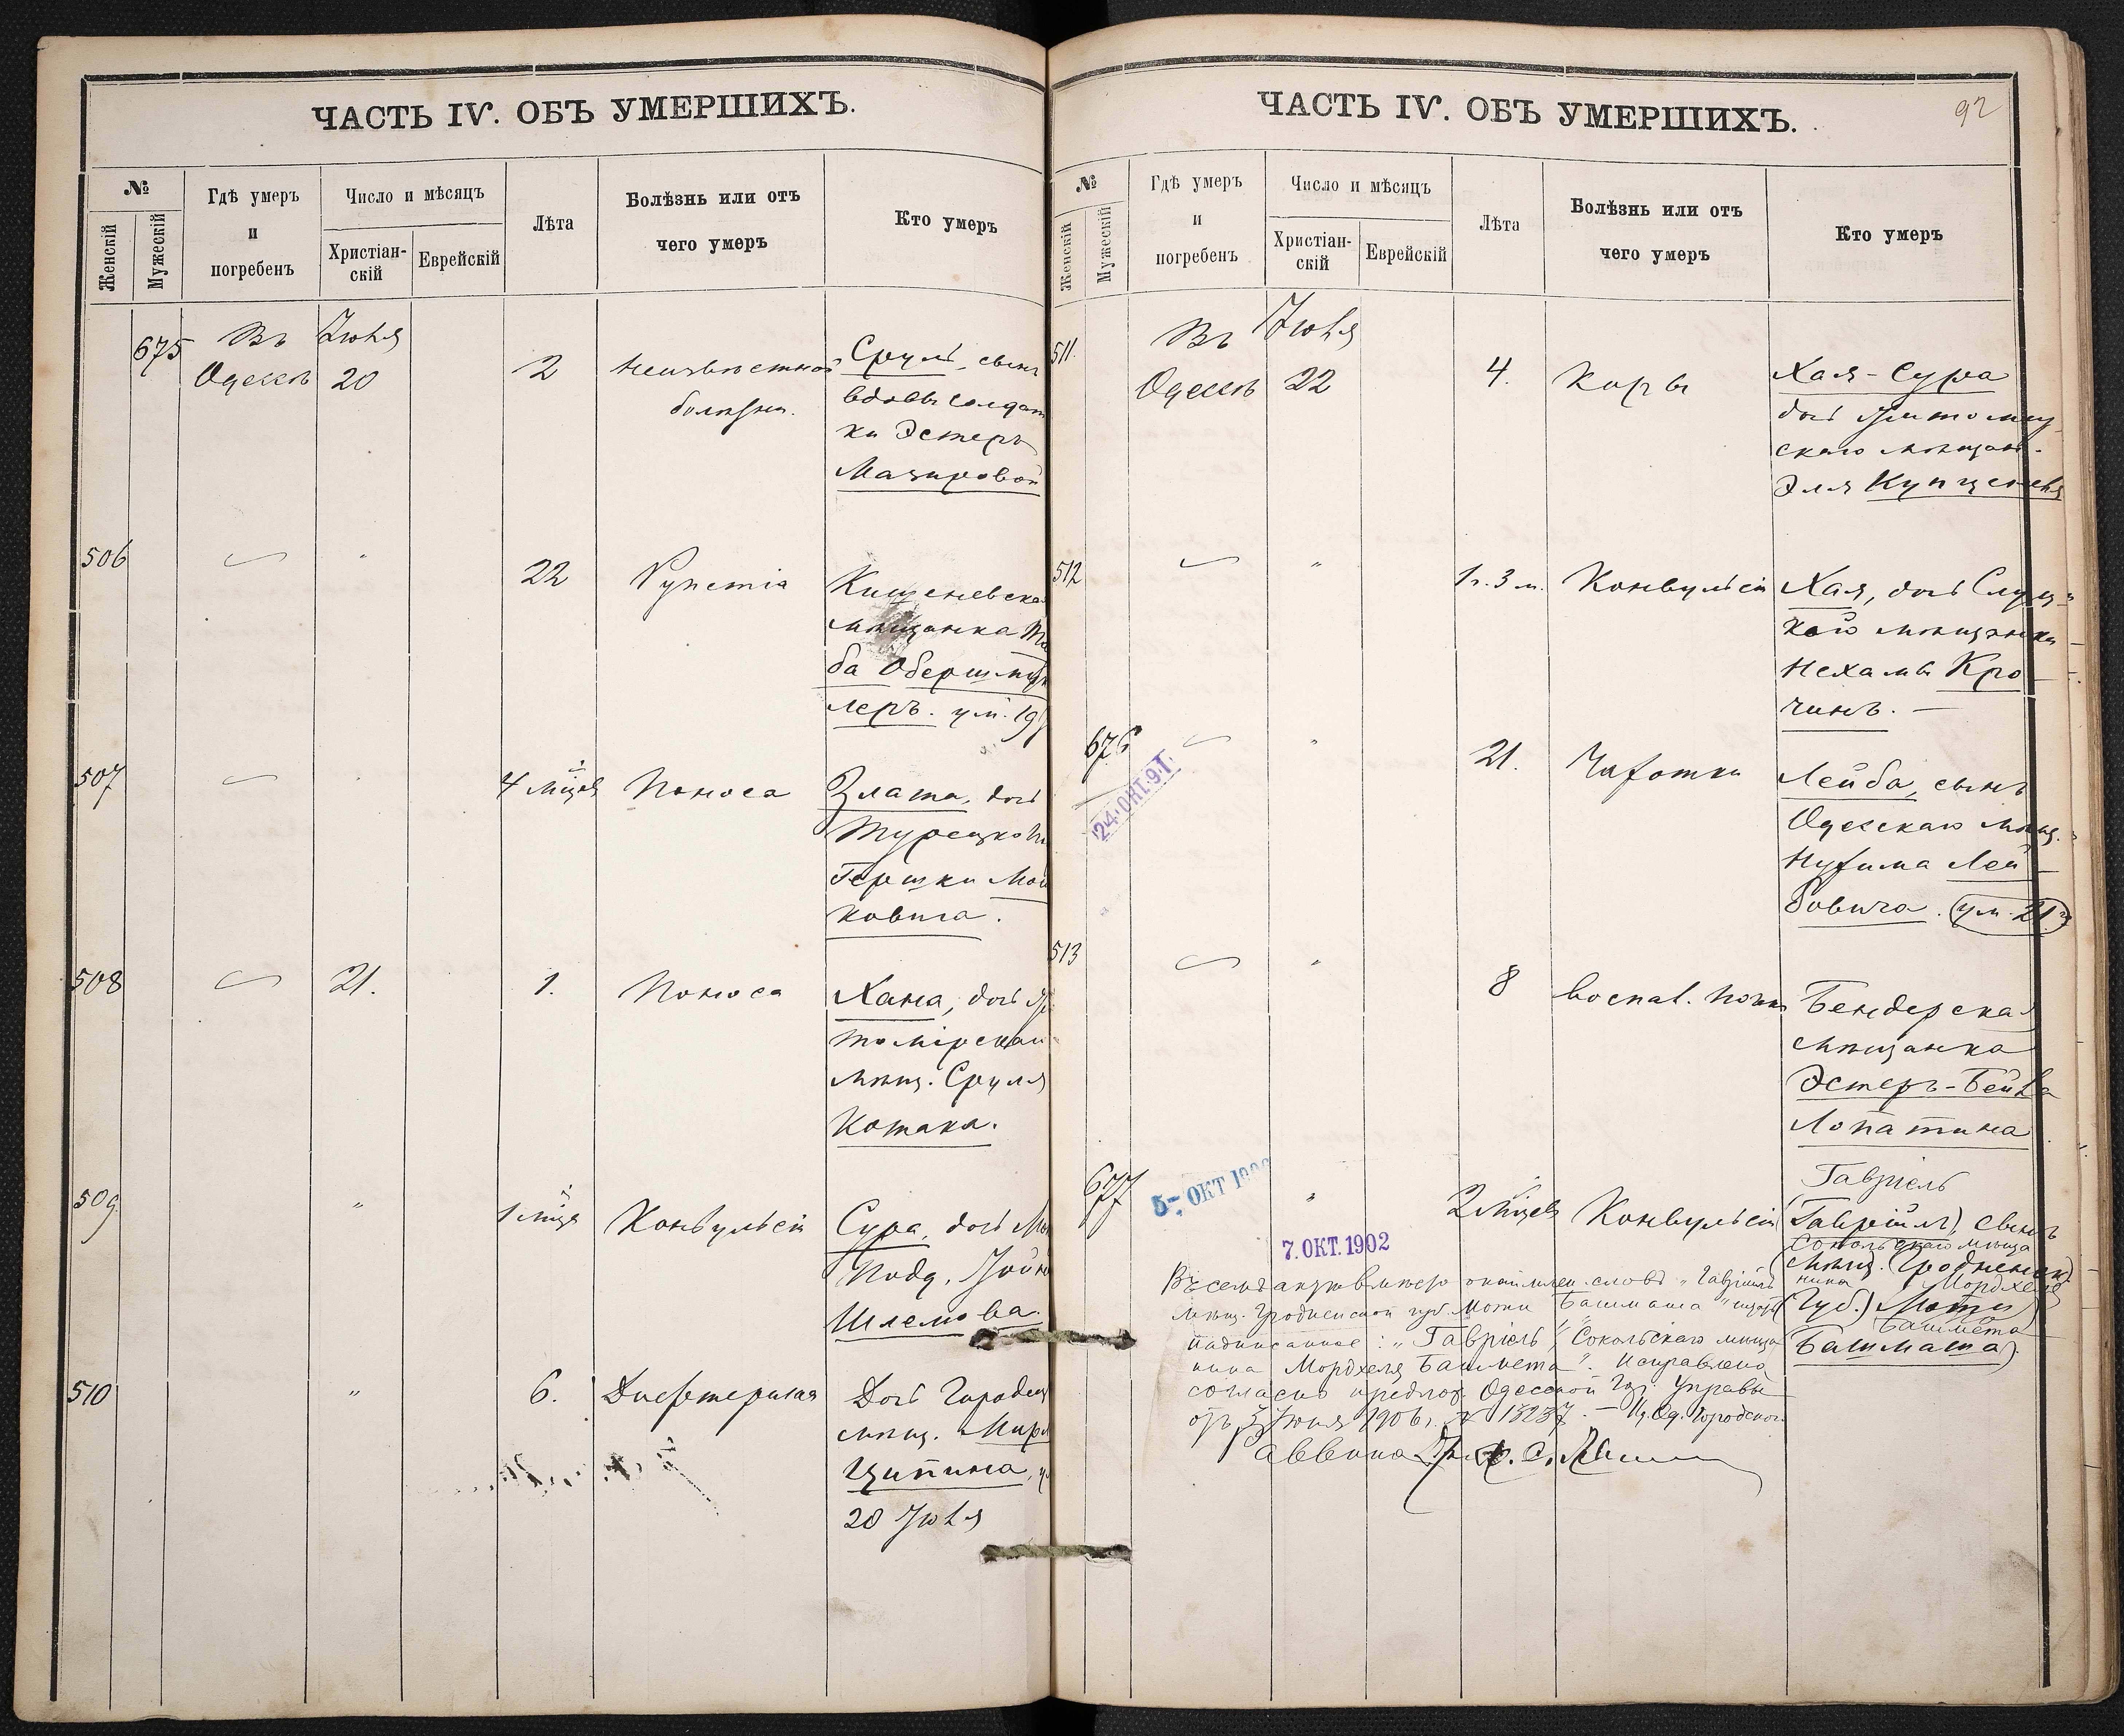 ЧАСТЬ IV. ОБЪ УМЕРШИХЪ.
№
Женскій
Мужескій
Гдѣ умеръ
и
погребенъ
Число и мѣсяцъ
Христіан-
скій
Еврейскій
Лѣта
Болѣзнь или отъ
чего умеръ
Кто умеръ
675
Въ
Одессѣ
Іюня
20
2
Неизвѣстной
болѣзни.
Сруль, сынъ
вдовы солдат
ки Эстеръ
Мазировой
506
"
22
Кишеневская
мѣщанка
ба Обершмук
леръ. ум. 19
507
4 мѣцев
Поноса
Злата, дочь
Турецко
Гершки Мош
ковича.
508
21.
1.
Поноса
Хана, дочь Жи
томірскаго
мѣщ. Сруля
Котака.
509
"
1 мѣця
Конвульсіи
Сура, дочь
Подд.
Шлемова.
510
"
6.
Дисентерическая
Дочь Городец
мѣщ. Мирл
Ципина, ум
20 Іюня
ЧАСТЬ IV. ОБЪ УМЕРШИХЪ.
92
№
Женскій
Мужескій
Гдѣ умеръ
и
погребенъ
Число и мѣсяцъ
Христіан-
скій
Еврейскій
Лѣта
Болѣзнь или отъ
чего умеръ
Кто умеръ
511.
Въ
Одессѣ
Іюня
22
4.
Коръ
Хая-Сура
дочь Житомир
скаго мѣщан.
Эля Купцеля
512
"
1 г. 3 м.
Конвульсіи
Хая, дочь Слуц
кой мѣщанки
Нехамы Кро
чинъ. —
676
24. ОКТ. 91.
"
21.
Чахотки
Лейба, сынъ
Одесскаго мѣщ.
Нухима Лей
бовича. (ум. 21го)
513
"
8
воспал. почек
Бендерская
мѣщанка
Эстеръ-Бейла
Лопатина
677
5- ОКТ
7. ОКТ. 1902
"
2 мѣцев
Конвульсіи
Гавріель
(Гавріилъ), сынъ
Сокольскаго мѣща
(мѣщ. Гродненск)
нина Мордхеля
Губ.) Моти)
Башмета
Башмата).
Въ семъ актѣ вмѣсто окаймлен. словъ "Гавріилъ
мѣщ. Гродненской губ. Моти Башмата"
надписанное: "Гавріель", "Сокольскаго мѣща
нина Мордхеля Башмета". Исправлено
согласно предлож. Одесской Гор. Управы
отъ 3 Іюня 1906 г. № 13237. — И. Од. Городского